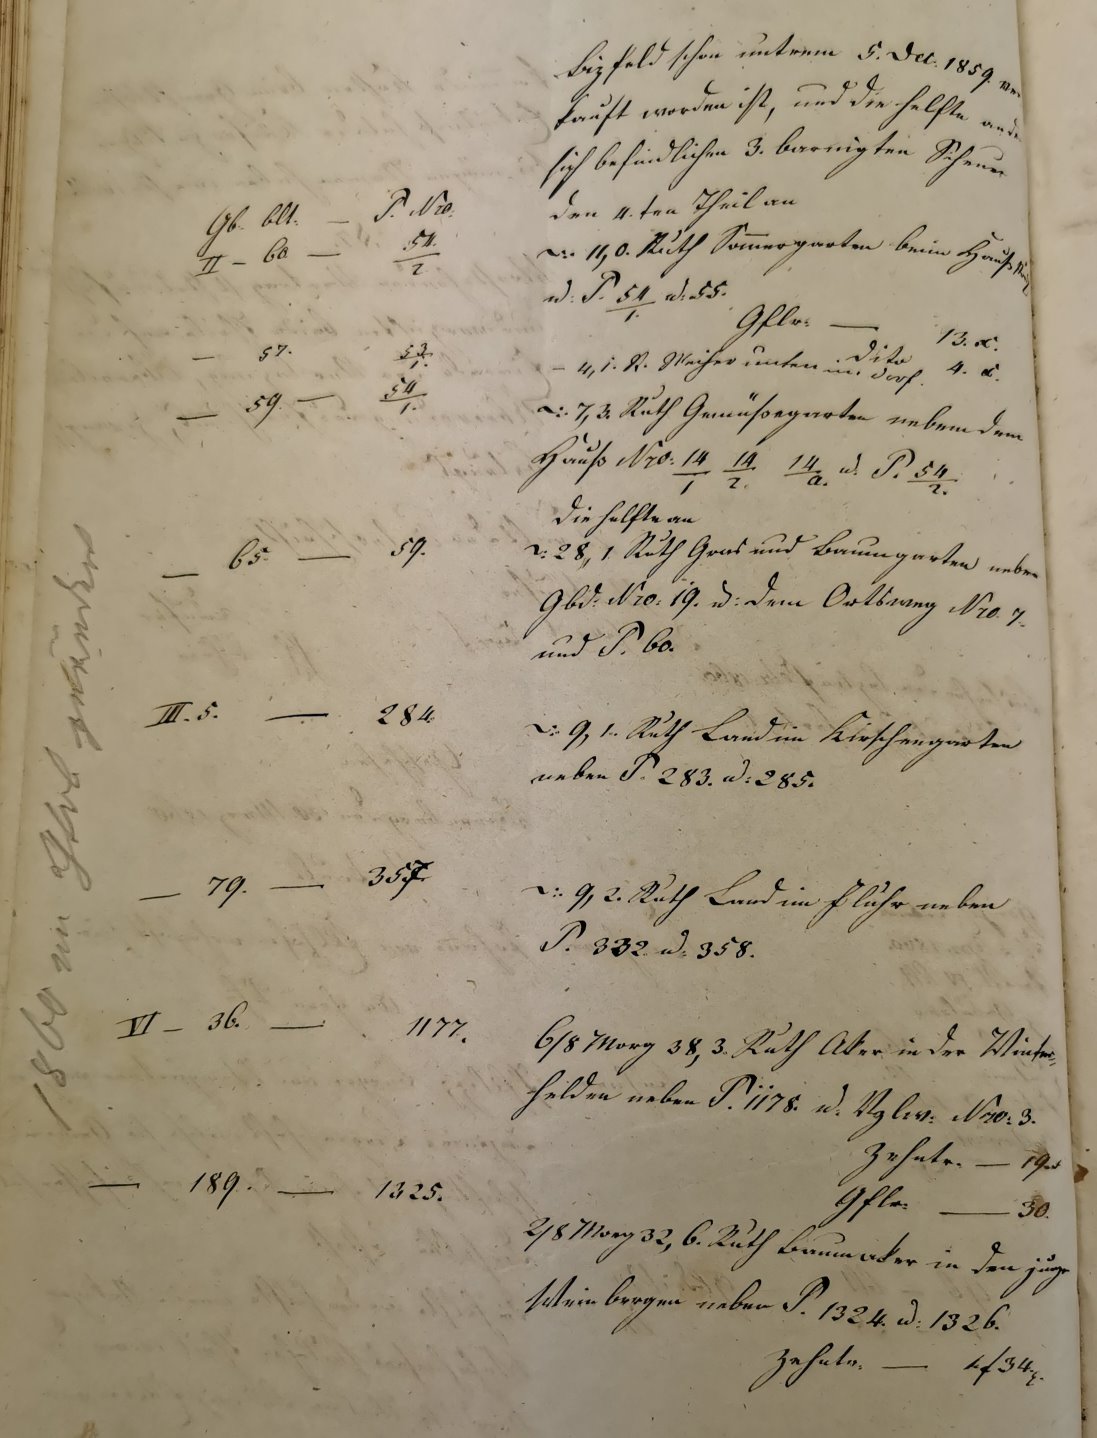 Bizfeld schon unterm 5. Dec. 1859. ver
kauft worden ist, und die helfte an der
sich befindlichen 3. barnigten Scheuer
den 4. ten Theil an
Gb. blt. — P. Nro.
II – 60 — 54/2
11,0. Ruth Sommergarten beim Hauß
u: P. 54/1. u: 55.
Gflr: — 13. x.
— 57. 53/1.
– 4,1. R. Weiher unten im Dorf. dito 4. x.
— 59. — 54/1.
7,3. Ruth Gemüßegarten neben dem
Hauß Nro: 14/1 14/2. 14/a. u. P. 54/2.
die helfte an
— 65. — 59.
28,1 Ruth Gras und Baumgarten neben
Gbd: Nro: 19. u: dem Ortsweg Nro. 7.
und P. 60.
III. 5. — 284.
9,1. Ruth Land im Kirschengarten
neben P. 283. u: 285.
— 79. — 357.
9,2. Ruth Land im Fluhr neben
P. 332. u: 358.
VI – 36. — 1177.
6/8 Morg 38,3. Ruth Aker in der Winter-
helden neben P. 1178. u. Vglw: Nro: 3.
Zehntr. — 19.
Gflr: — 30.
— 189. — 1325.
2/8 Morg 32,6. Ruth Baumaker in den jungen
Weinbergen neben P. 1324. u: 1326.
Zehntr. — 1f 34x.
1860 im